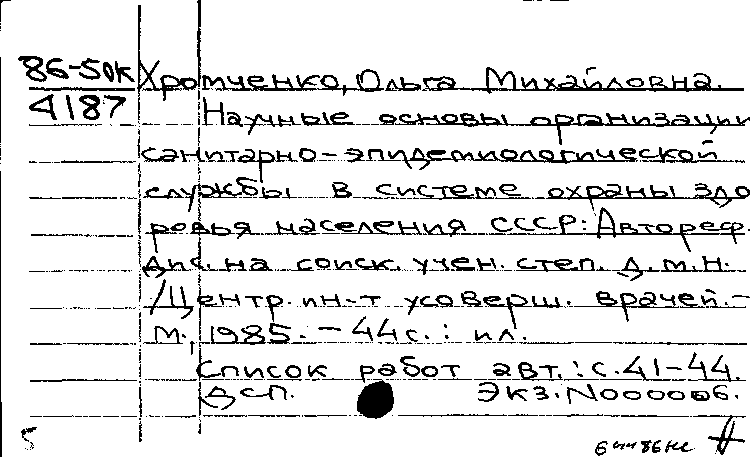 86-50к Хромченко, Ольга Михайловна.
4187 Научные основы организации
санитарно-эпидемиологической
службы в системе охраны здо
ровья населения СССР: Автореф.
дис. на соиск. учен. степ. д.м.н.
/Центр. ин-т усоверш. врачей.-
М., 1985. - 44 с.: ил.
Список работ авт.: с. 41-44.
ДСП. Экз. N000006.
5